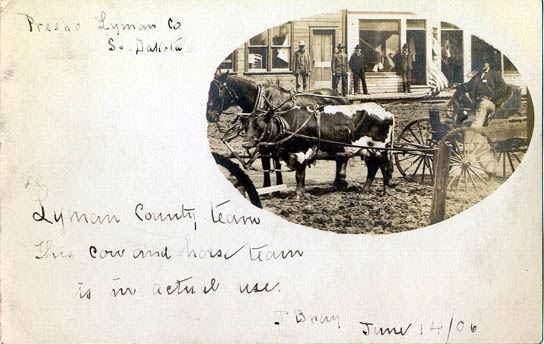 Presho Lyman Co
So. Dakota
Lyman County team
This cow and horse team
is in actual use.
J Bray
June 14/06